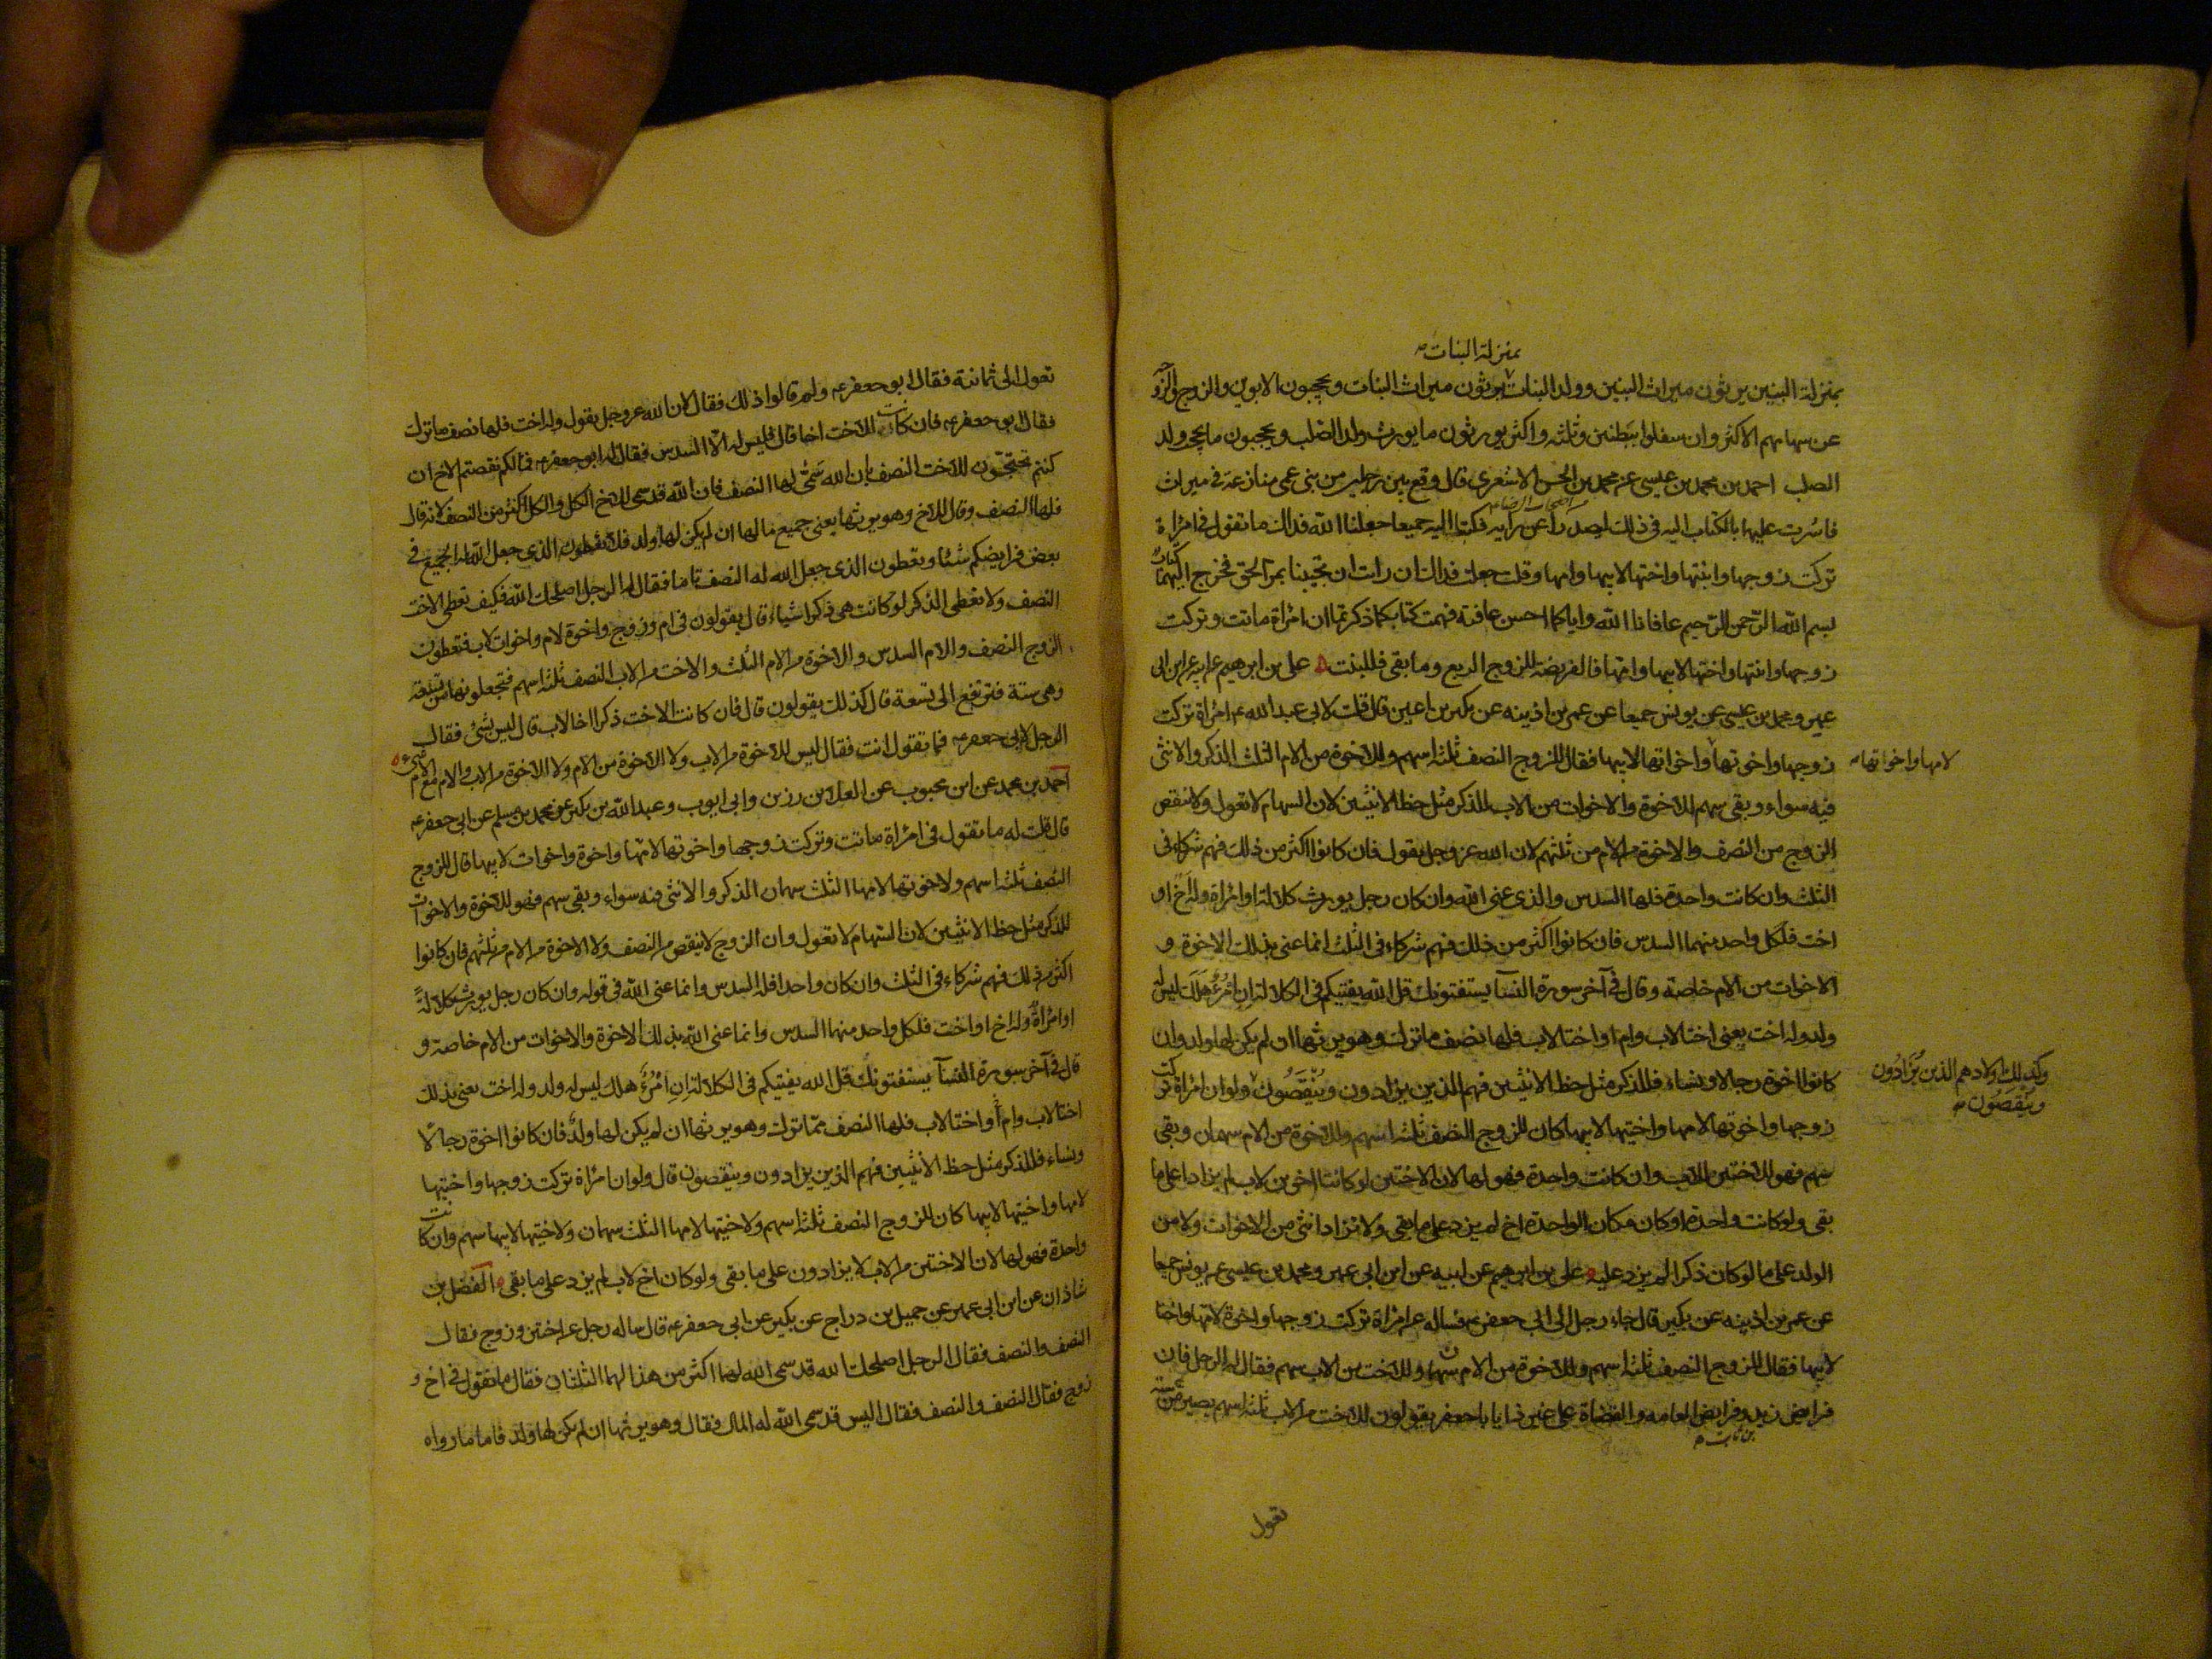 بمنزلة البنات
بمنزلة البنين يرثون ميراث البنين وولد البنات يرثون ميراث البنات ويحجبون الابوين والزوج والزوجة
عن سهامهم الاكثر وان سفلوا ببطنين وثلثة واكثر يورثون ما يورث ولد الصلب ويحجبون ما يحجب ولد
الصلب احمد بن محمد بن عيسى عن محمد بن الحسن الاشعرى قال وقع بين رجلين من بنى عمى منازعة فى ميراث
فاشرت عليهما بالكتاب اليه فى ذلك ليصدرا عن رايه فكتبا اليه جميعا جعلنا الله فداك ما تقول فى امراة
تركت زوجها وابنتها واختها لابيها وامها وقلت جعلت فداك ان رايت ان تجيبنا بمر الحق فخرج اليهما كتاب
بسم الله الرحمن الرحيم عافانا الله واياكما احسن عافية فهمت كتابكما ذكرتما ان امراة ماتت وتركت
زوجها وابنتها واختها لابيها وامها فالفريضة للزوج الربع وما بقى فللبنت على بن ابرهيم عن ابيه عن ابن ابى
عمير ومحمد بن عيسى عن يونس جميعا عن عمر بن اذينه عن بكير بن اعين قال قلت لابى عبد الله ع امراة تركت
زوجها واخوتها واخواتها لابيها فقال للزوج النصف ثلثة اسهم وللاخوة من الام الثلث الذكر والانثى
لامها واخواتها
فيه سواء وبقى سهم للاخوة والاخوات من الاب للذكر مثل حظ الانثيين لان السهام لا تعول ولا ينقص
الزوج من النصف ولا الاخوة من الام من ثلثهم لان الله عز وجل يقول فان كانوا اكثر من ذلك فهم شركاء فى
الثلث وان كانت واحدة فلها السدس والذى عنى الله وان كان رجل يورث كلالة او امراة وله اخ او
اخت فلكل واحد منهما السدس فان كانوا اكثر من ذلك فهم شركاء فى الثلث انما عنى بذلك الاخوة و
الاخوات من الام خاصة وقال فى آخر سورة النسآ يستفتونك قل الله يفتيكم فى الكلالة ان امرؤ هلك ليس له
ولد وله اخت يعنى اختا لاب وام او اختا لاب فلها نصف ما ترك وهو يرثها ان لم يكن لها ولد وان
كانوا اخوة رجالا ونساء فللذكر مثل حظ الانثيين فهم الذين يزادون وينقصون ولو ان امراة تركت
وكذلك اولادهم الذين يزادون
وينقصون
زوجها واخوتها لامها واختيها لابيها كان للزوج النصف ثلثة اسهم وللاخوة من الام سهمان وبقى
سهم فهو للاختين للاب وان كانت واحدة فهو لها لان الاختين لو كانتا اخوين لاب لم يزادا على ما
بقى ولو كانت واحدة او كان مكان الواحدة اخ لم يزد على ما بقى ولا تزاد انثى من الاخوات ولا من
الولد على ما لو كان ذكرا لم يزد عليه على بن ابرهيم عن ابيه عن ابن ابى عمير ومحمد بن عيسى عن يونس جميعا
عن عمر بن اذينه عن بكير قال جاء رجل الى ابى جعفر ع فساله عن امراة تركت زوجها واخوة لامها واختا
لابيها فقال للزوج النصف ثلثة اسهم وللاخوة من الام سهمان وللاخت من الاب سهم فقال له الرجل فان
فرايض زيد وفرايض العامه والقضاة على غير ذا يا با جعفر يقولون للاخت من الاب ثلثة اسهم يصير من ستة
بن ثابت
تعول
تعول الى ثمانية فقال ابو جعفر ع ولم قالوا ذلك فقال لان الله عز وجل يقول وله اخت فلها نصف ما ترك
فقال ابو جعفر ع فان كانت الاخت اخا قال فليس له الا السدس فقال له ابو جعفر ع فما لكم نقصتم الاخ ان
كنتم تحتجون للاخت النصف بان الله سمى لها النصف فان الله قد سمى للاخ الكل والكل اكثر من النصف لانه قال
فلها النصف وقال للاخ وهو يرثها يعنى جميع مالها ان لم يكن لها ولد فلا تعطون الذى جعل الله له الجميع فى
بعض فرايضكم شيئا وتعطون الذى جعل الله له النصف تاما فقال له الرجل اصلحك الله فكيف نعطى الاخت
النصف ولا نعطى الذكر لو كانت هى ذكرا شيئا قال يقولون فى ام وزوج واخوة لام واخوات لاب فتعطون
الزوج النصف والام السدس والاخوة من الام الثلث والاخت من الاب النصف ثلثة اسهم فتجعلونها من تسعة
وهى ستة فترتفع الى تسعة قال كذلك يقولون قال فان كانت الاخت ذكرا اخا لاب قال ليس له شئ فقال
الرجل لابى جعفر ع فما تقول انت فقال ليس للاخوة من الاب ولا الاخوة من الام ولا الاخوة من الاب والام مع الام شئ
احمد بن محمد عن ابن محبوب عن العلا بن رزين وابى ايوب وعبد الله بن بكير عن محمد بن مسلم عن ابى جعفر ع
قال قلت له ما تقول فى امراة ماتت وتركت زوجها واخوتها لامها واخوة واخوات لابيها قال للزوج
النصف ثلثة اسهم ولاخوتها لامها الثلث سهمان الذكر والانثى فيه سواء وبقى سهم فهو للاخوة والاخوات
للذكر مثل حظ الانثيين لان السهام لا تعول وان الزوج لا ينقص من النصف ولا الاخوة من الام من ثلثهم فان كانوا
اكثر من ذلك فهم شركاء فى الثلث وان كان واحدا فله السدس وانما عنى الله فى قوله وان كان رجل يورث كلالة
او امراة وله اخ او اخت فلكل واحد منهما السدس وانما عنى الله بذلك الاخوة والاخوات من الام خاصة و
قال فى آخر سورة النسآ يستفتونك قل الله يفتيكم فى الكلالة ان امرؤ هلك ليس له ولد وله اخت يعنى بذلك
اختا لاب وام او اختا لاب فلها النصف مما ترك وهو يرثها ان لم يكن لها ولد فان كانوا اخوة رجالا
ونساء فللذكر مثل حظ الانثيين فهم الذين يزادون وينقصون قال ولو ان امراة تركت زوجها واختيها
لامها واختيها لابيها كان للزوج النصف ثلثة اسهم ولاختيها لامها الثلث سهمان ولاختيها لابيها سهم وان كانت
واحدة فهو لها لان الاختين من الاب لا يزادون على ما بقى ولو كان اخ لاب لم يزد على ما بقى الفضل بن
شاذان عن ابن ابى عمير عن جميل بن دراج عن بكير عن ابى جعفر ع قال ساله رجل عن اختين وزوج فقال
النصف والنصف فقال الرجل اصلحك الله قد سمى الله لهما اكثر من هذا لهما الثلثان فقال ما تقول فى اخ و
زوج فقال النصف والنصف فقال اليس قد سمى الله له المال فقال وهو يرثها ان لم يكن لها ولد فاما ما رواه